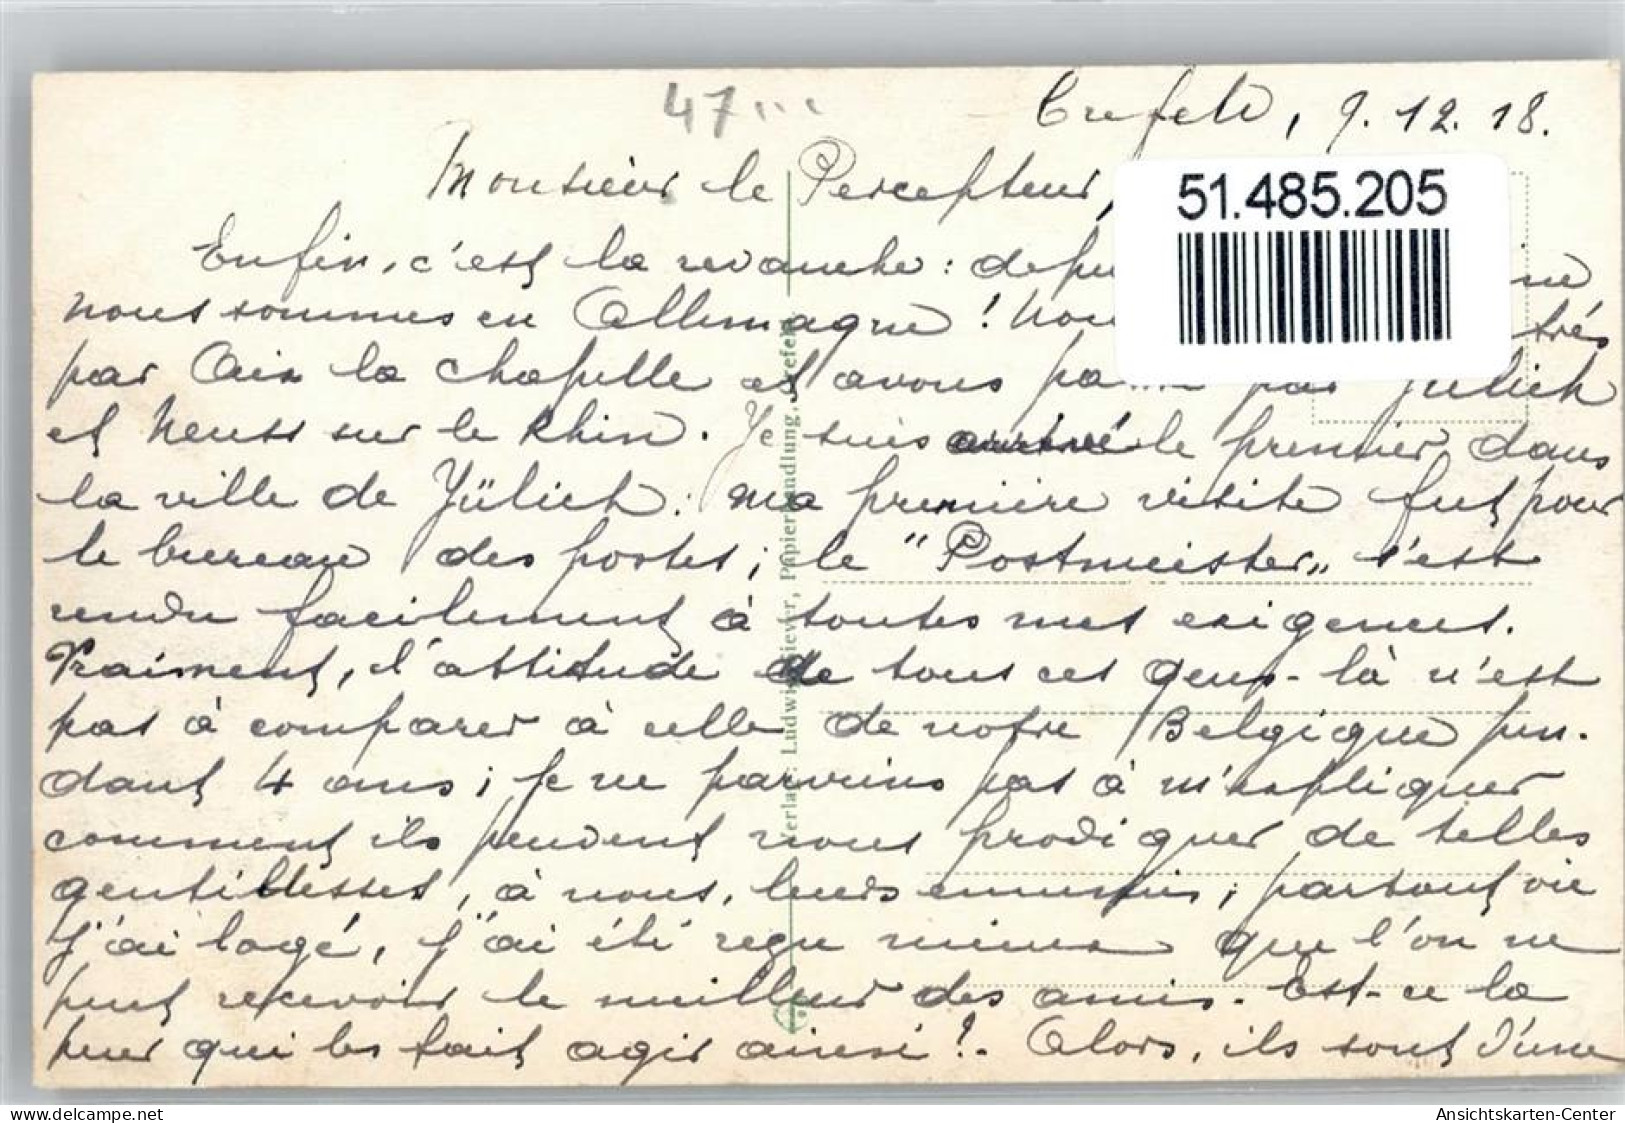 47...
Crefeld, 9.12.18.
Monsieur le Percepteur,
51.485.205
Enfin, c'est la revanche : ne
nous sommes en Allemagne ! trés
par Aix la chapelle et avons par Jülich
et Neuss sur le Rhin. Je suis le premier dans
la ville de Jülich : ma première visite fut pour
le bureau des postes ; le "Postmeister" s'est
rendu facilement à toutes mes exigences.
Vraiment, l'attitude de tous ces gens-là n'est
pas à comparer à celle de notre Belgique pen-
dant 4 ans ; je ne parviens pas à m'expliquer
comment ils peuvent nous prodiguer de telles
gentillesses, à nous, leurs ennemis ; partout où
j'ai logé, j'ai été reçu mieux que l'on ne
peut recevoir le meilleur des amis. Est-ce la
peur qui les fait agir ainsi ?. Alors, ils sont d'une
Verlag: Ludwig Siever, Papierhandlung, Crefeld.
delcampe.net
Ansichtskarten-Center